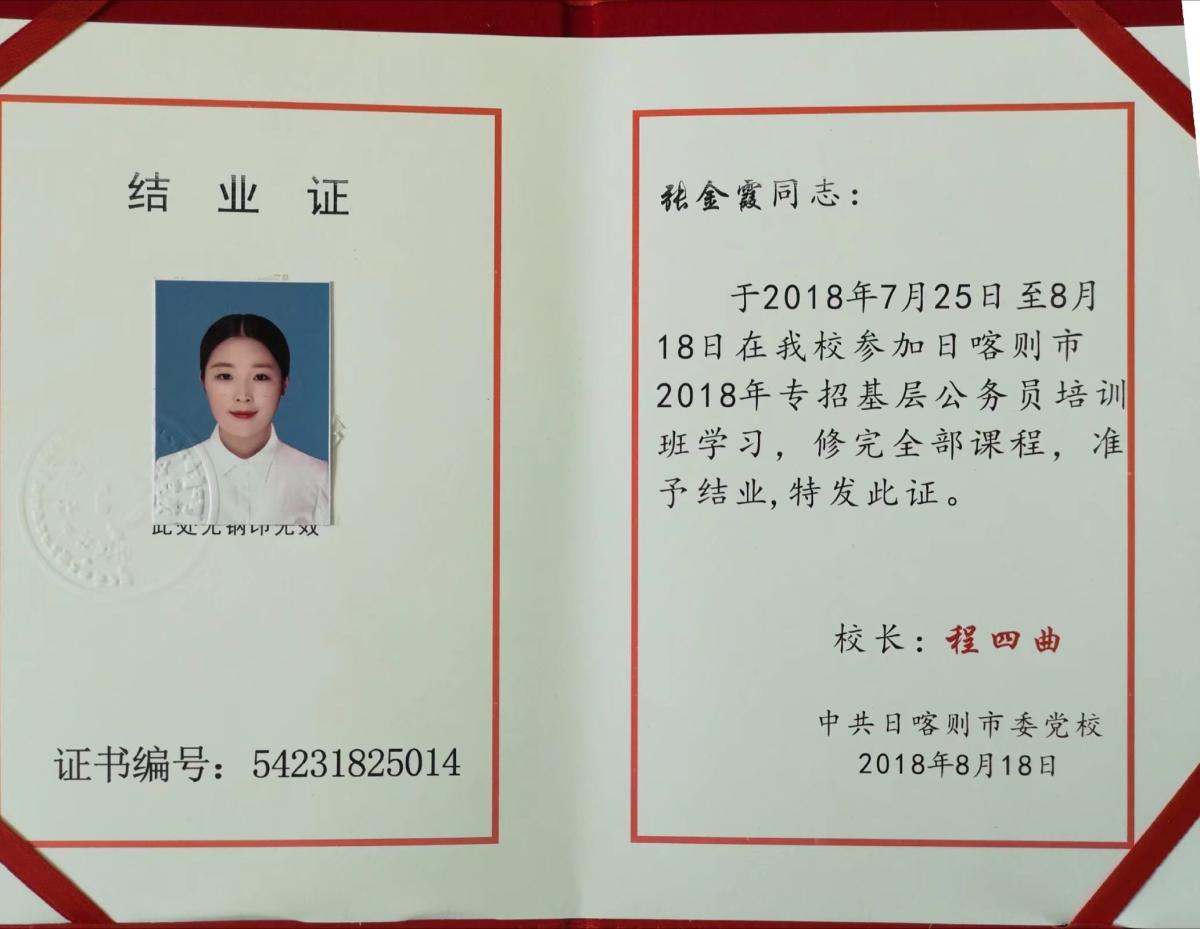 结业证
此处无钢印无效
证书编号：54231825014
张金霞同志：
于2018年7月25日至8月
18日在我校参加日喀则市
2018年专招基层公务员培训
班学习，修完全部课程，准
予结业,特发此证。
校长：程四曲
中共日喀则市委党校
2018年8月18日